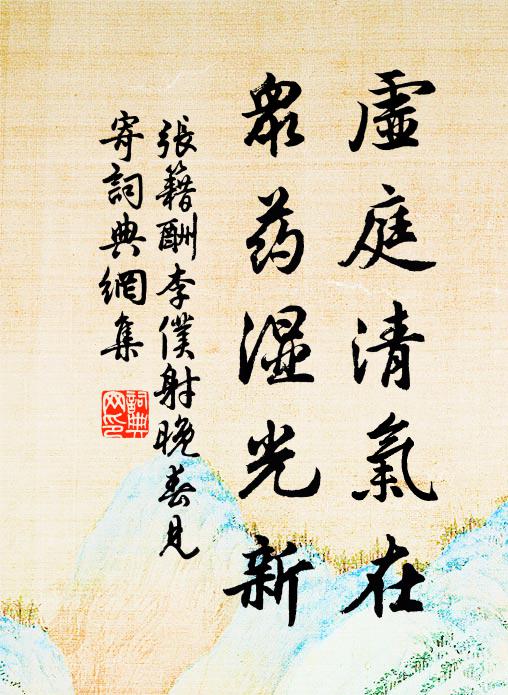 虛庭清氣在
眾药湿光新
張籍酬李僕射晚春見
寄詞典網集
詞典
网印